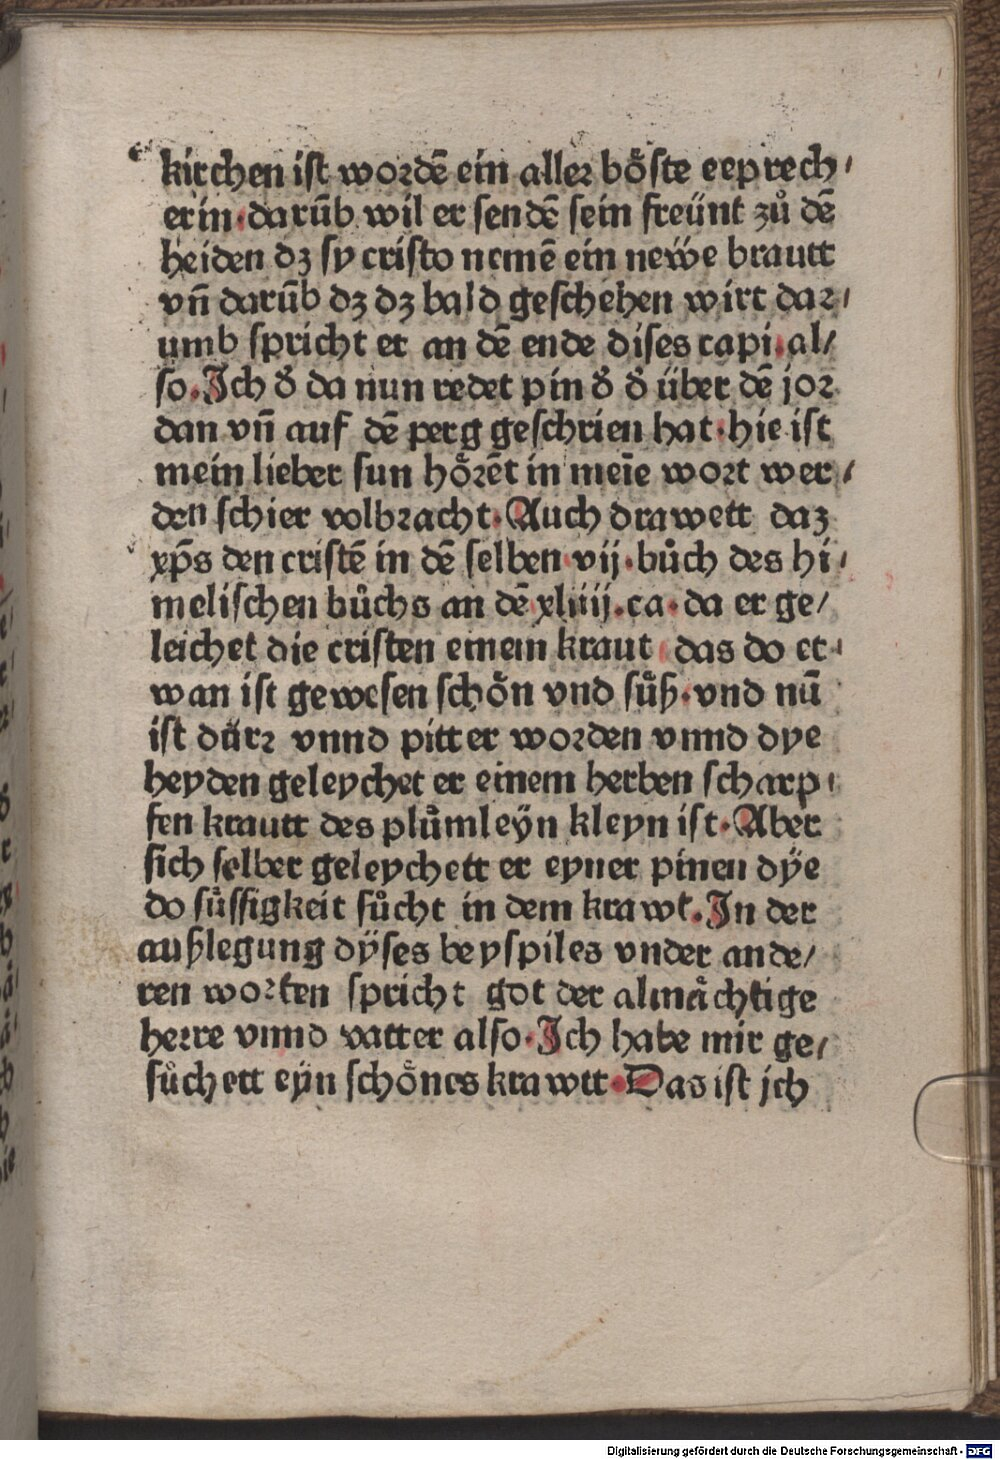 kirchen ist wordē ein aller bo̊ste eeprech⸗
erin·darūb wil er sendē sein freünt zů dē
heiden dz sy cristo nemē ein neẅe brautt
vn̄ darūb dz dz bald geschehen wirt dar⸗
umb spricht er an dē ende dises capi.al/
so.Ich d̓ da nun redet pin d̓ d̓ über dē jor
dan vn̄ auf dē perg geschrien hat·hie ist
mein lieber sun ho̊rēt in meīe wort wer⸗
den schier volbracht.Auch drawett daz
xp̄s den cristē in dē selben vij·bůch des hi⸗
melischen bůchs an dē xliiij.ca·da er ge/
leichet die cristen einem kraut das do et⸗
wan ist gewesen scho̊n vnd sůß·vnd nū
ist důrr vnnd pitter worden vnnd dye
heyden geleychet er einem herben scharp⸗
fen krautt des plůmleÿn kleyn ist·Aber
sich selber geleychett er eyner pinen dÿe
do sůssigkeit sůcht in dem krawt.In der
außlegung dÿses beyspiles vnder ande/
ren worten spricht got der almåchtige
herre vnnd vatter also·Ich habe mir ge/
sůchett eÿn scho̊nes krawtt·Das ist jch
Digitalisierung gefördert durch die Deutsche Forschungsgemeinschaft - DFG